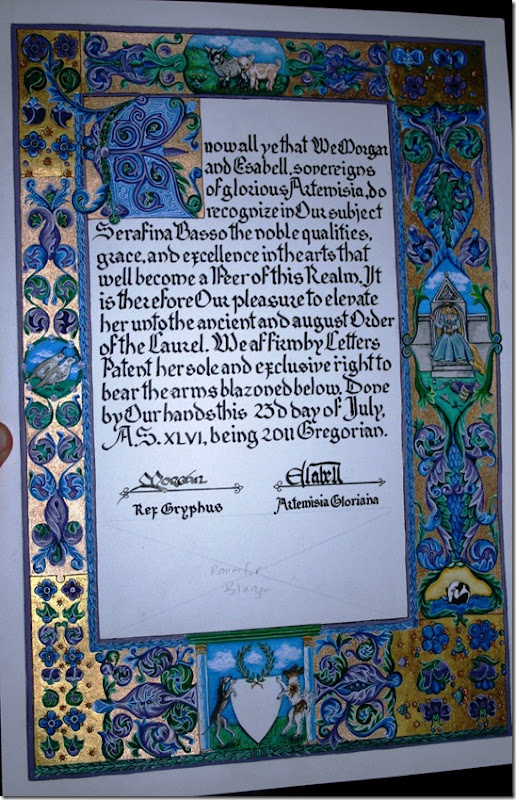 Know all ye that We Morgan
and Esabell, sovereigns
of glorious Artemisia, do
recognize in Our subject
Serafina Basso the noble qualities,
grace, and excellence in the arts that
well become a Peer of this Realm. It
is therefore Our pleasure to elevate
her unto the ancient and august Order
of the Laurel. We affirm by Letters
Patent her sole and exclusive right to
bear the arms blazoned below. Done
by Our hands this 23d day of July,
A.S. XLVI, being 2011 Gregorian.
Morgan Esabell
Rex Gryphus Artemisia Gloriana
Room for
Blazon